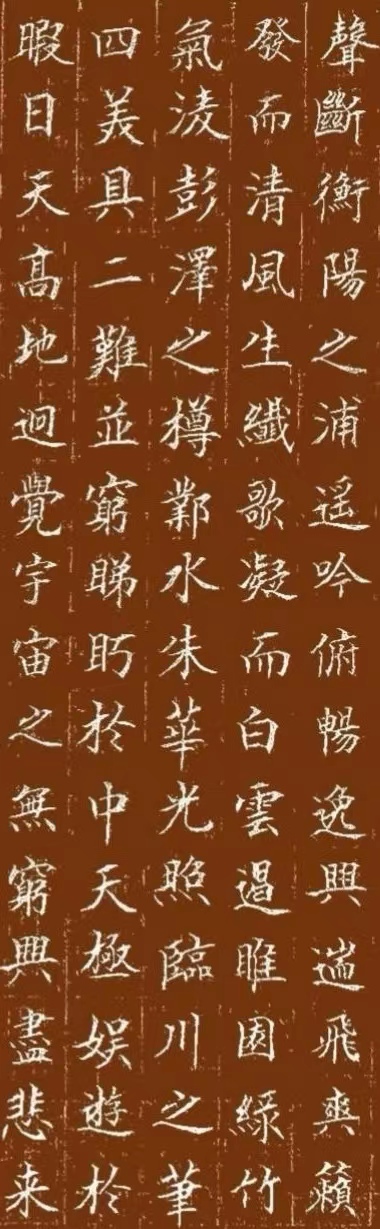 聲斷衡陽之浦遥吟俯暢逸興遄飛爽籟
發而清風生纖歌凝而白雲遏睢園緑竹
氣淩彭澤之樽鄴水朱華光照臨川之筆
四美具二難並窮睇眄於中天極娱遊於
暇日天高地迥覺宇宙之無窮興盡悲来